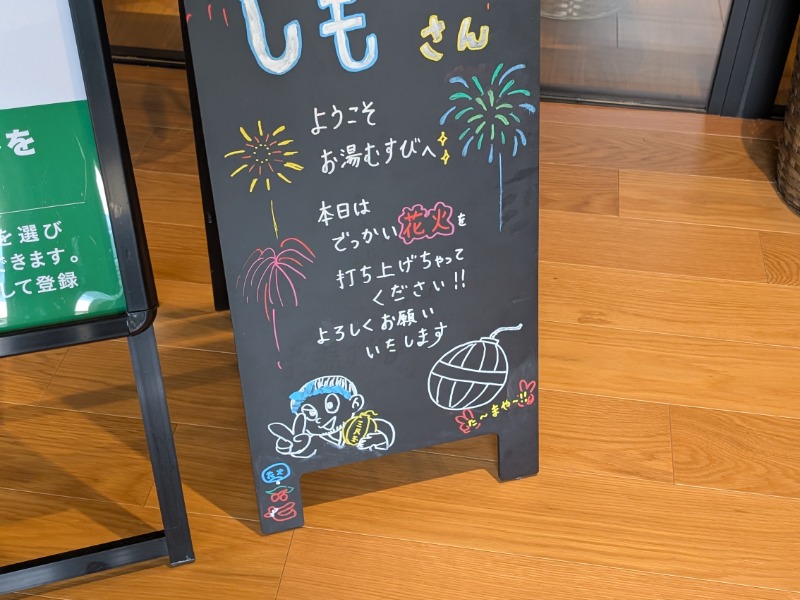 しも
さん
ようこそ
お湯むすびへ
本日は
でっかい花火を
打ち上げちゃって
ください!!
よろしくお願い
いたします
た〜まや〜!!
を
を選び
できます。
して登録